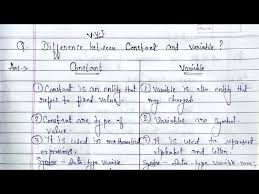 V.V.I
Q. Difference between Constant and Variable?
Ans :- Constant Variable
① Constant is an entity that ① Variable is also entity that
refers to fixed value. may changed.
② Constant are type of ② Variables are Symbol.
Value.
③ It is used in ③ It is used to represent
expressions. alphabet and
Syntax - Data-type Syntax - Data-type variable